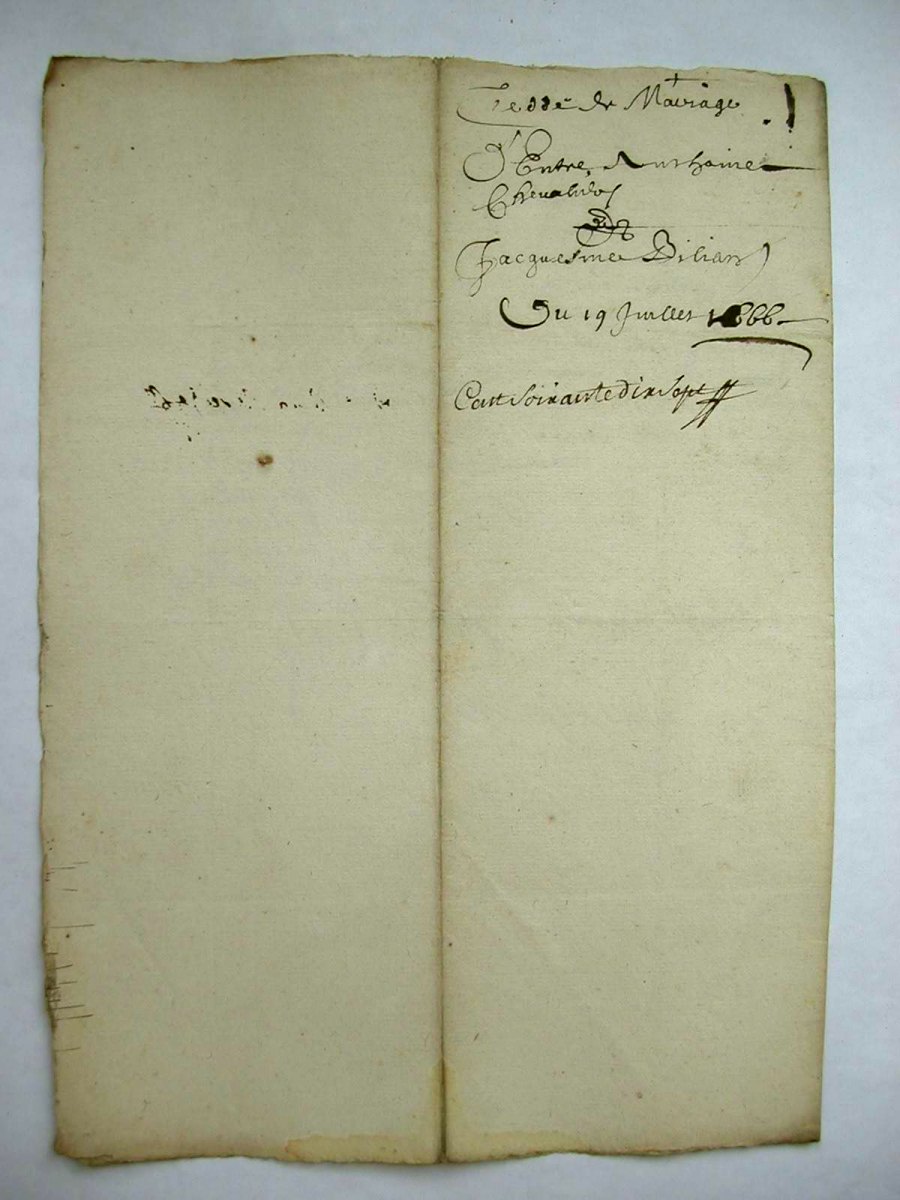 de Mariage
D'Entre Anthoine
Chevalidos
Et
Jacquesmee Bilian
Du 19 Juillet 1666
Cent Soixante dix Sept